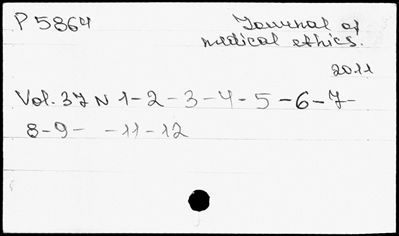 P 5864 Journal of
medical ethics.
2011
Vol. 37 N 1-2-3-4-5-6-7-
8-9- -11-12